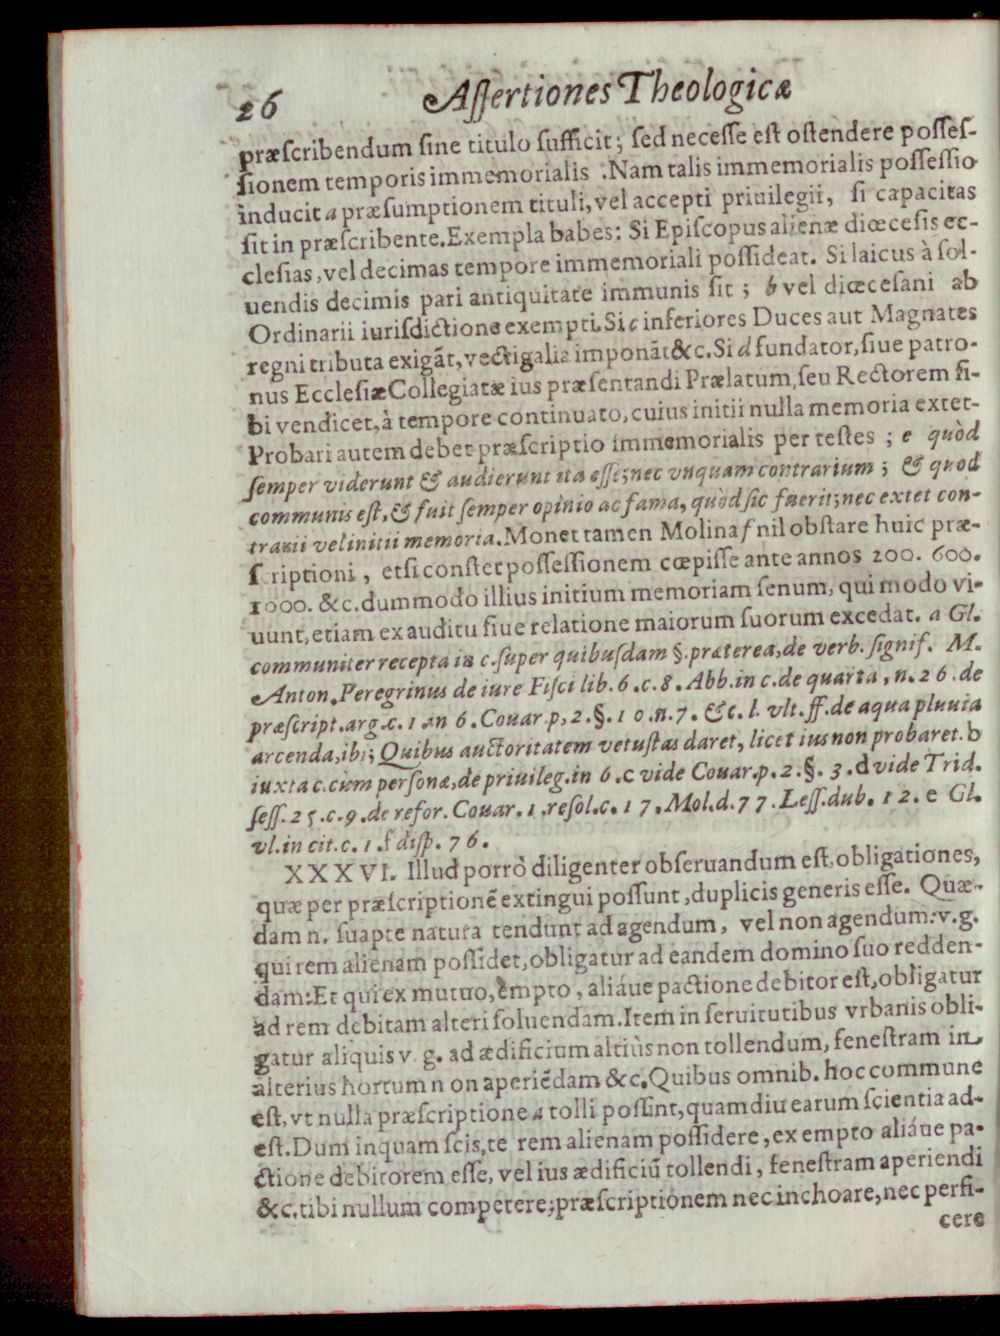 26 Aſſertiones Theologicæ
præſcribendum ſine titulo ſufficit; ſed neceſſe eſt oſtendere poſſeſ-
ſionem temporis immemorialis .Nam talis immemorialis poſſeſſio
inducit a præſumptionem tituli, vel accepti priuilegii, ſi capacitas
ſit in præſcribente.Exempla babes: Si Epiſcopus alienæ diœceſis ec-
cleſias, vel decimas tempore immemoriali poſſideat. Si laicus à ſol-
uendis decimis pari antiquitate immunis ſit; b vel diœceſani ab
Ordinarii iuriſdictione exempti.Si c inferiores Duces aut Magnates
regni tributa exigãt, vectigalia imponãt &c.Si d fundator, ſiue patro-
nus Eccleſiæ Collegiatæ ius præſentandi Prælatum, ſeu Rectorem ſi-
bi vendicet, à tempore continuato, cuius initii nulla memoria extet-
Probari autem debet præſcriptio immemorialis per teſtes ; e quòd
ſemper viderunt & audierunt ita eſſe; nec vnquam contrarium ; & quod
communis eſt, & fuit ſemper opinio ac fama, quòd ſic fuerit; nec extet con-
trarii vel initii memoria.Monet tamen Molina f nil obſtare huic præ-
ſcriptioni, etſi conſtet poſſeſſionem cœpiſſe ante annos 200. 600.
1000. &c. dummodo illius initium memoriam ſenum, qui modo vi-
uunt, etiam ex auditu ſiue relatione maiorum ſuorum excedat. a Gl.
communiter recepta in c.ſuper quibuſdam §.præterea, de verb. ſignif. M.
Anton.Peregrinus de iure Fiſci lib.6.c.8.Abb.in c.de quarta, n.26.de
præſcript.arg.c.1.in 6.Couar.p, 2.§.10.n.7. &c. l. vlt.ff.de aqua pluuia
arcenda, ibi; Quibus auctoritatem vetuſtas daret, licet ius non probaret. b
iuxta c.cum perſonæ, de priuileg.in 6.c vide Couar.p.2.§.3.d vide Trid.
ſeſſ.25.c.9.de refor.Couar.1.reſol.c.17.Mol.d.77.Leſſ.dub.12.e Gl.
vl.in cit.c.1.f diſp.76.
XXXVI. Illud porrò diligenter obſeruandum eſt, obligationes,
quæ per præſcriptionẽ extingui poſſunt, duplicis generis eſſe. Quæ-
dam n. ſuapte natura tendunt ad agendum, vel non agendum: v.g.
qui rem alienam poſſidet, obligatur ad eandem domino ſuo redden-
dam: Et qui ex mutuo, empto, aliáue pactione debitor eſt, obligatur
ad rem debitam alteri ſoluendam.Item in ſeruitutibus vrbanis obli-
gatur aliquis v. g. ad ædificium altiùs non tollendum, feneſtram in
alterius hortum n on aperiẽdam &c.Quibus omnib. hoc commune
eſt, vt nulla præſcriptione a tolli poſſint, quamdiu earum ſcientia ad-
eſt.Dum inquam ſcis, te rem alienam poſſidere, ex empto aliáue pa-
ctione debitorem eſſe, vel ius ædificiũ tollendi, feneſtram aperiendi
&c. tibi nullum competere; præſcriptionem nec inchoare, nec perfi-
cere